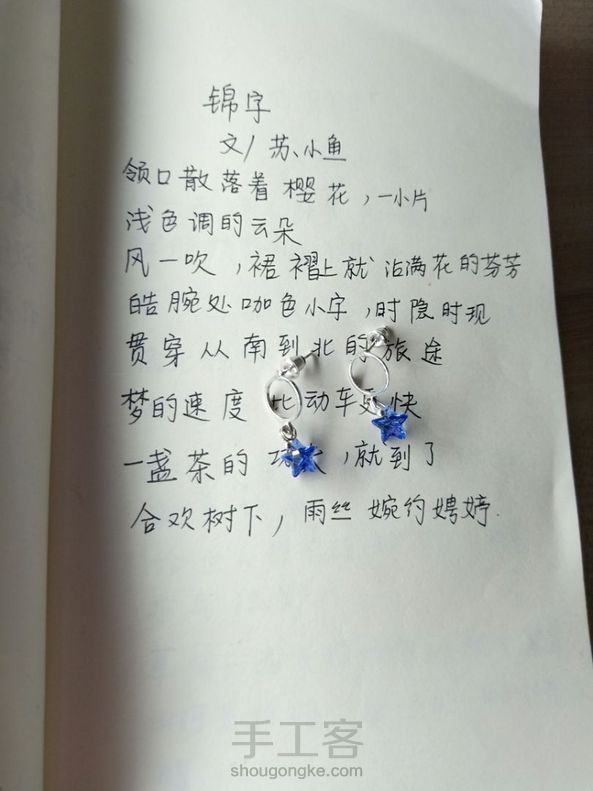 锦字
文/苏小鱼
领口散落着樱花，一小片
浅色调的云朵
风一吹，裙褶上就沾满花的芬芳
皓腕处咖色小字，时隐时现
贯穿从南到北的旅途
梦的速度比动车更快
一盏茶的，就到了
合欢树下，雨丝婉约娉婷.
手工客
shougongke.com